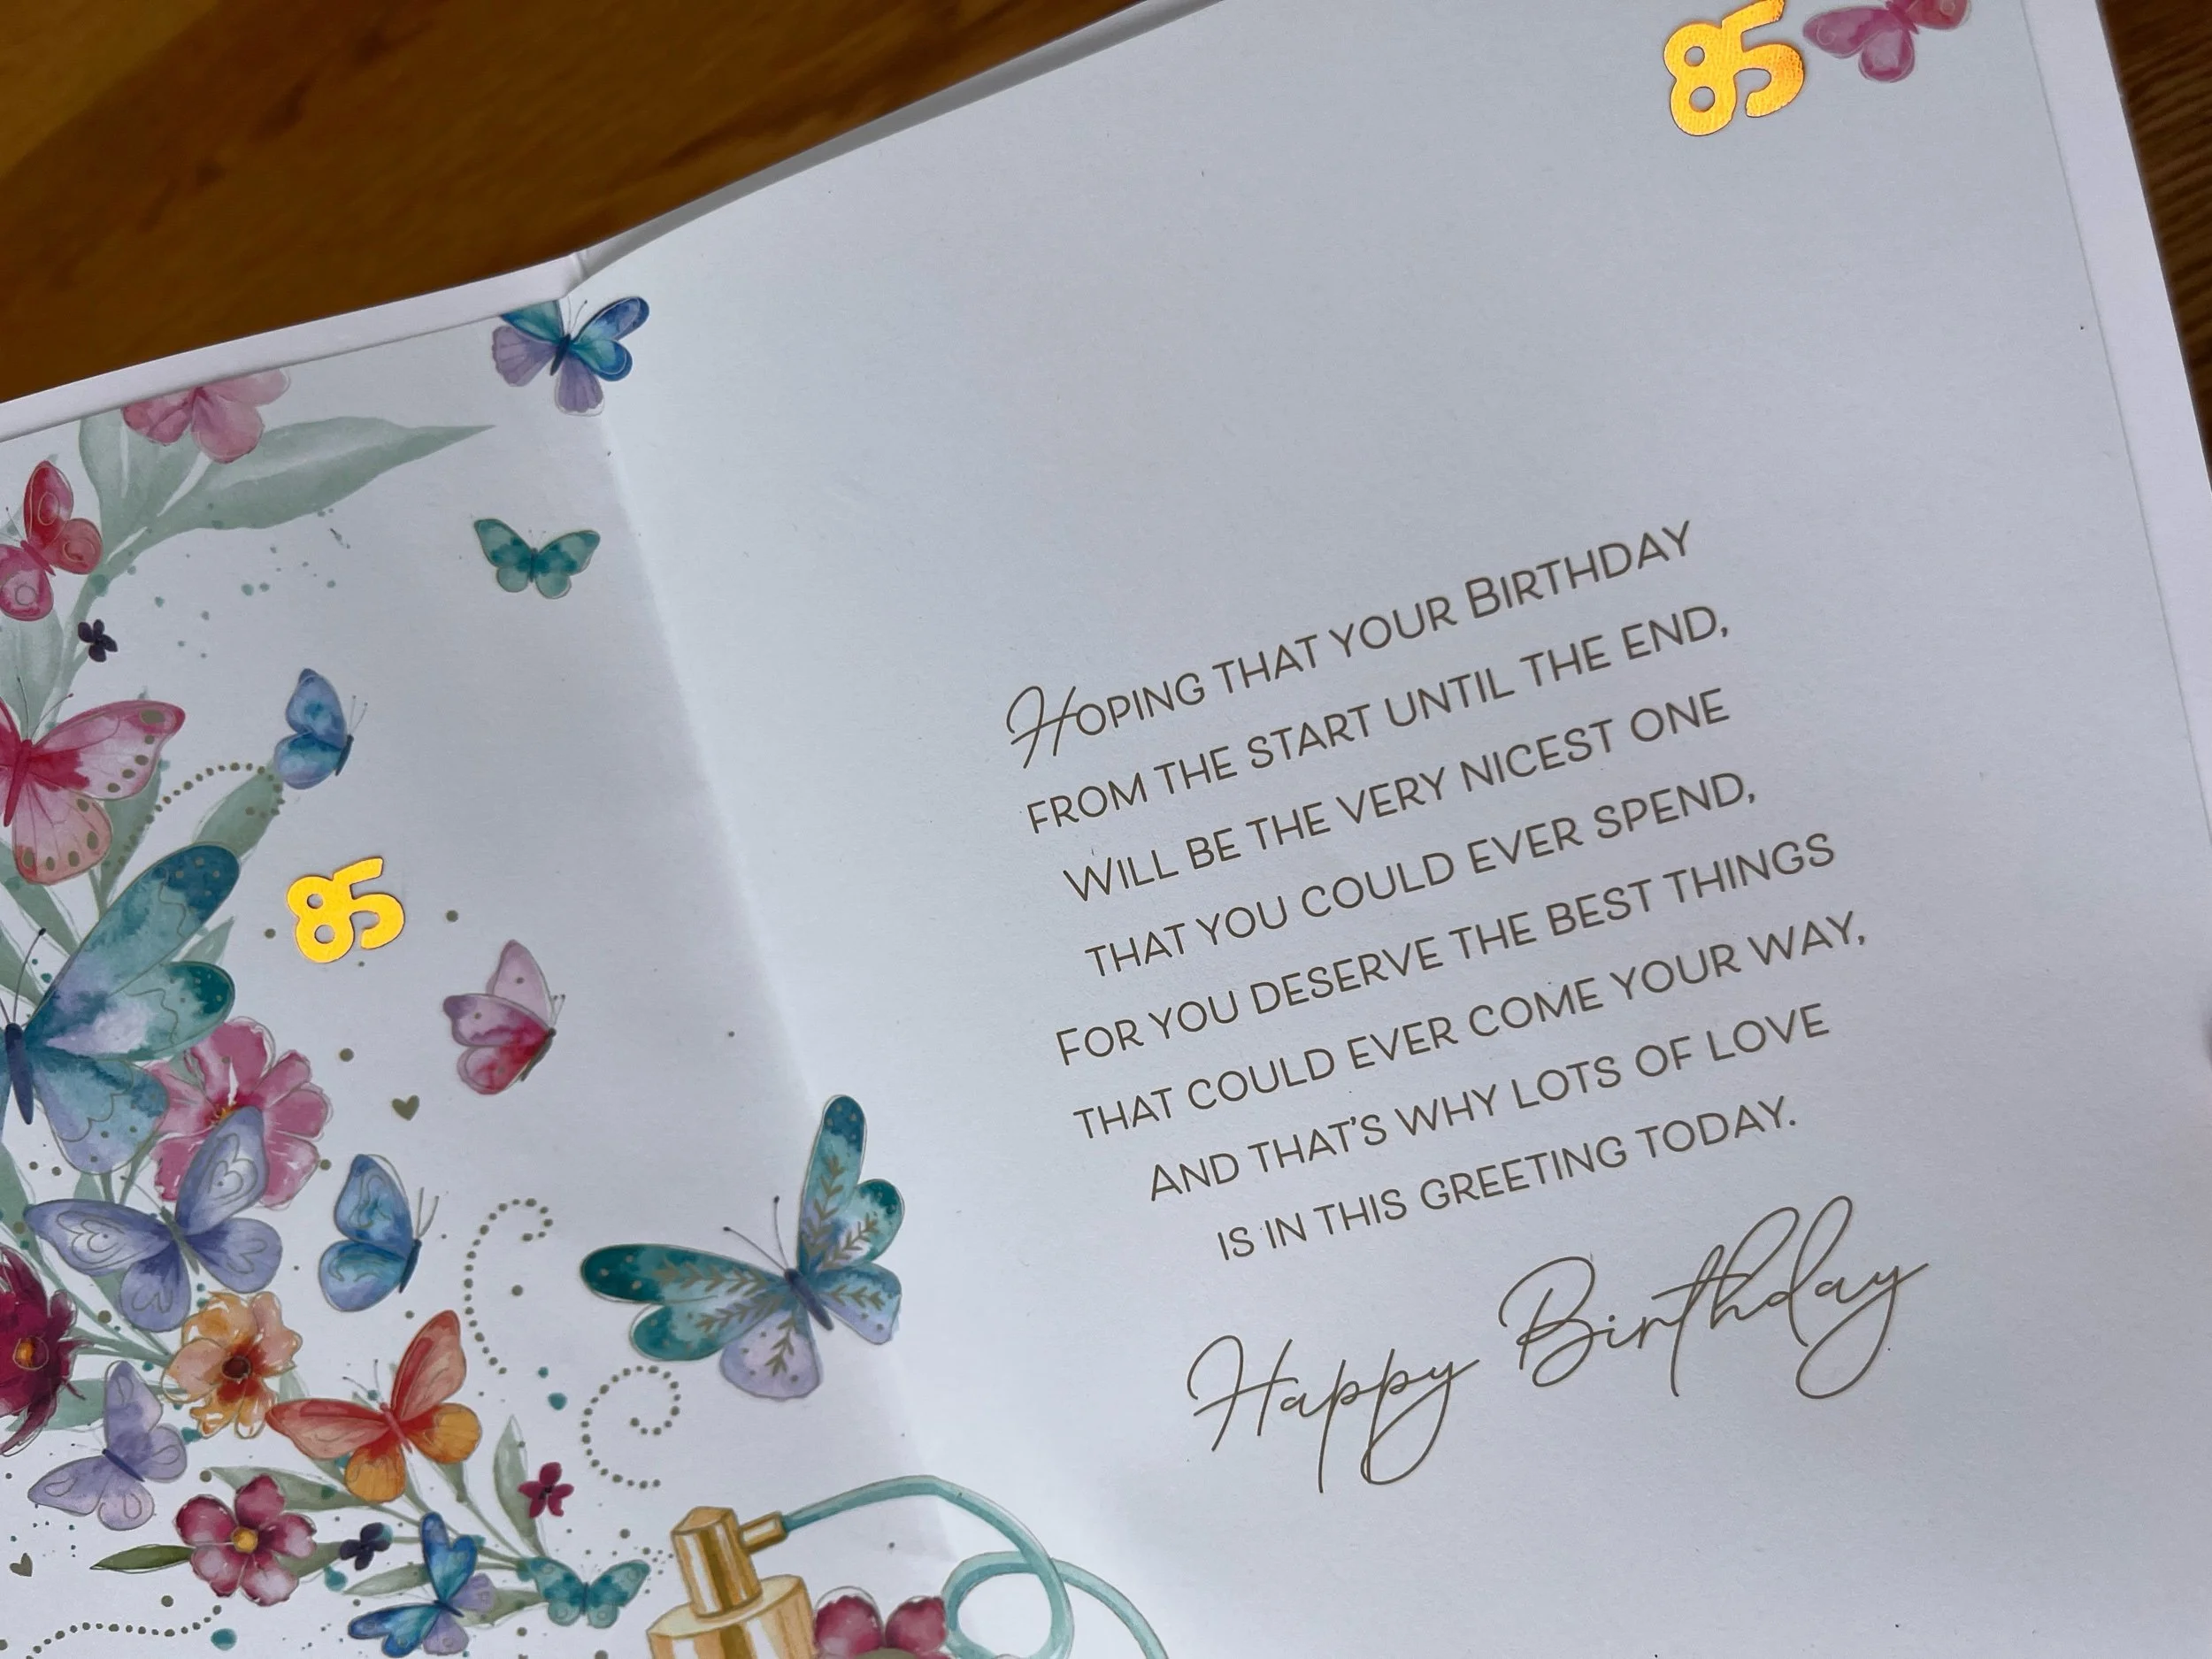 85
85
Hoping that your Birthday
from the start until the end,
will be the very nicest one
that you could ever spend,
for you deserve the best things
that could ever come your way,
and that's why lots of love
is in this greeting today.
Happy Birthday